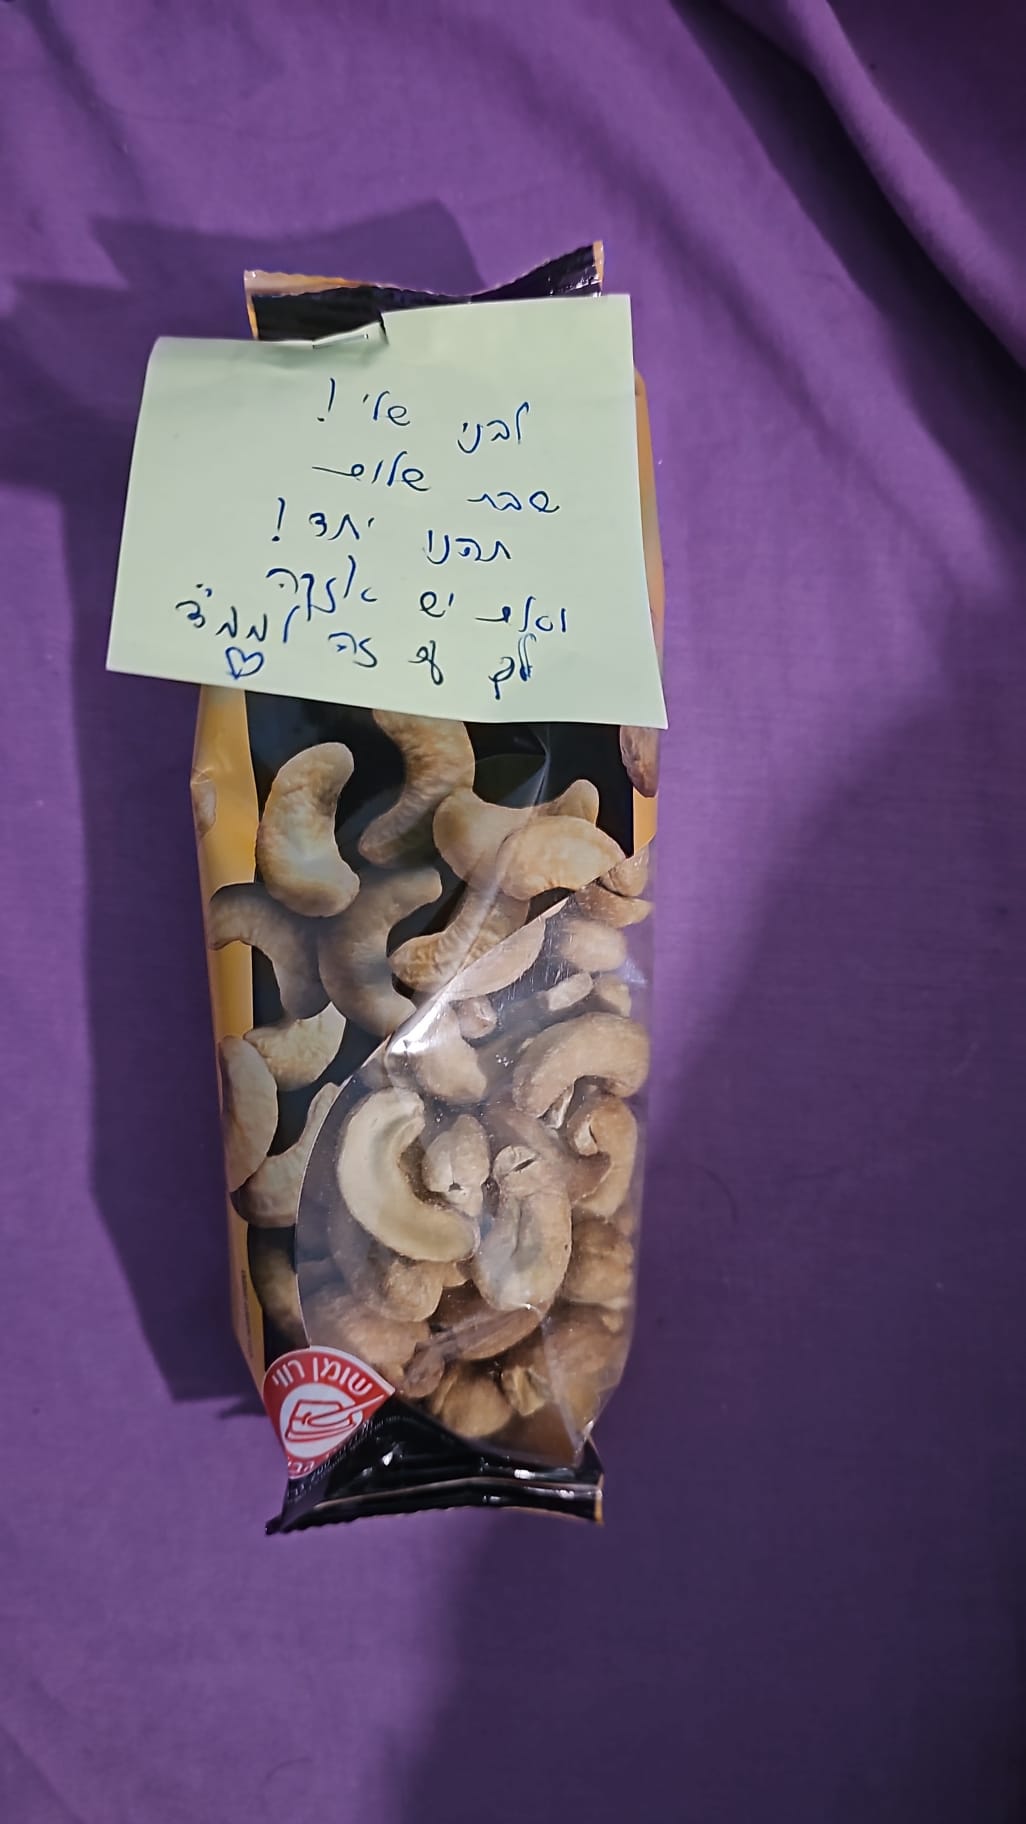 לבני שלי !
שבת שלום
תהנו יחד !
ואם יש אזעקה
לכו עם זה לממ"ד
שומן רווי